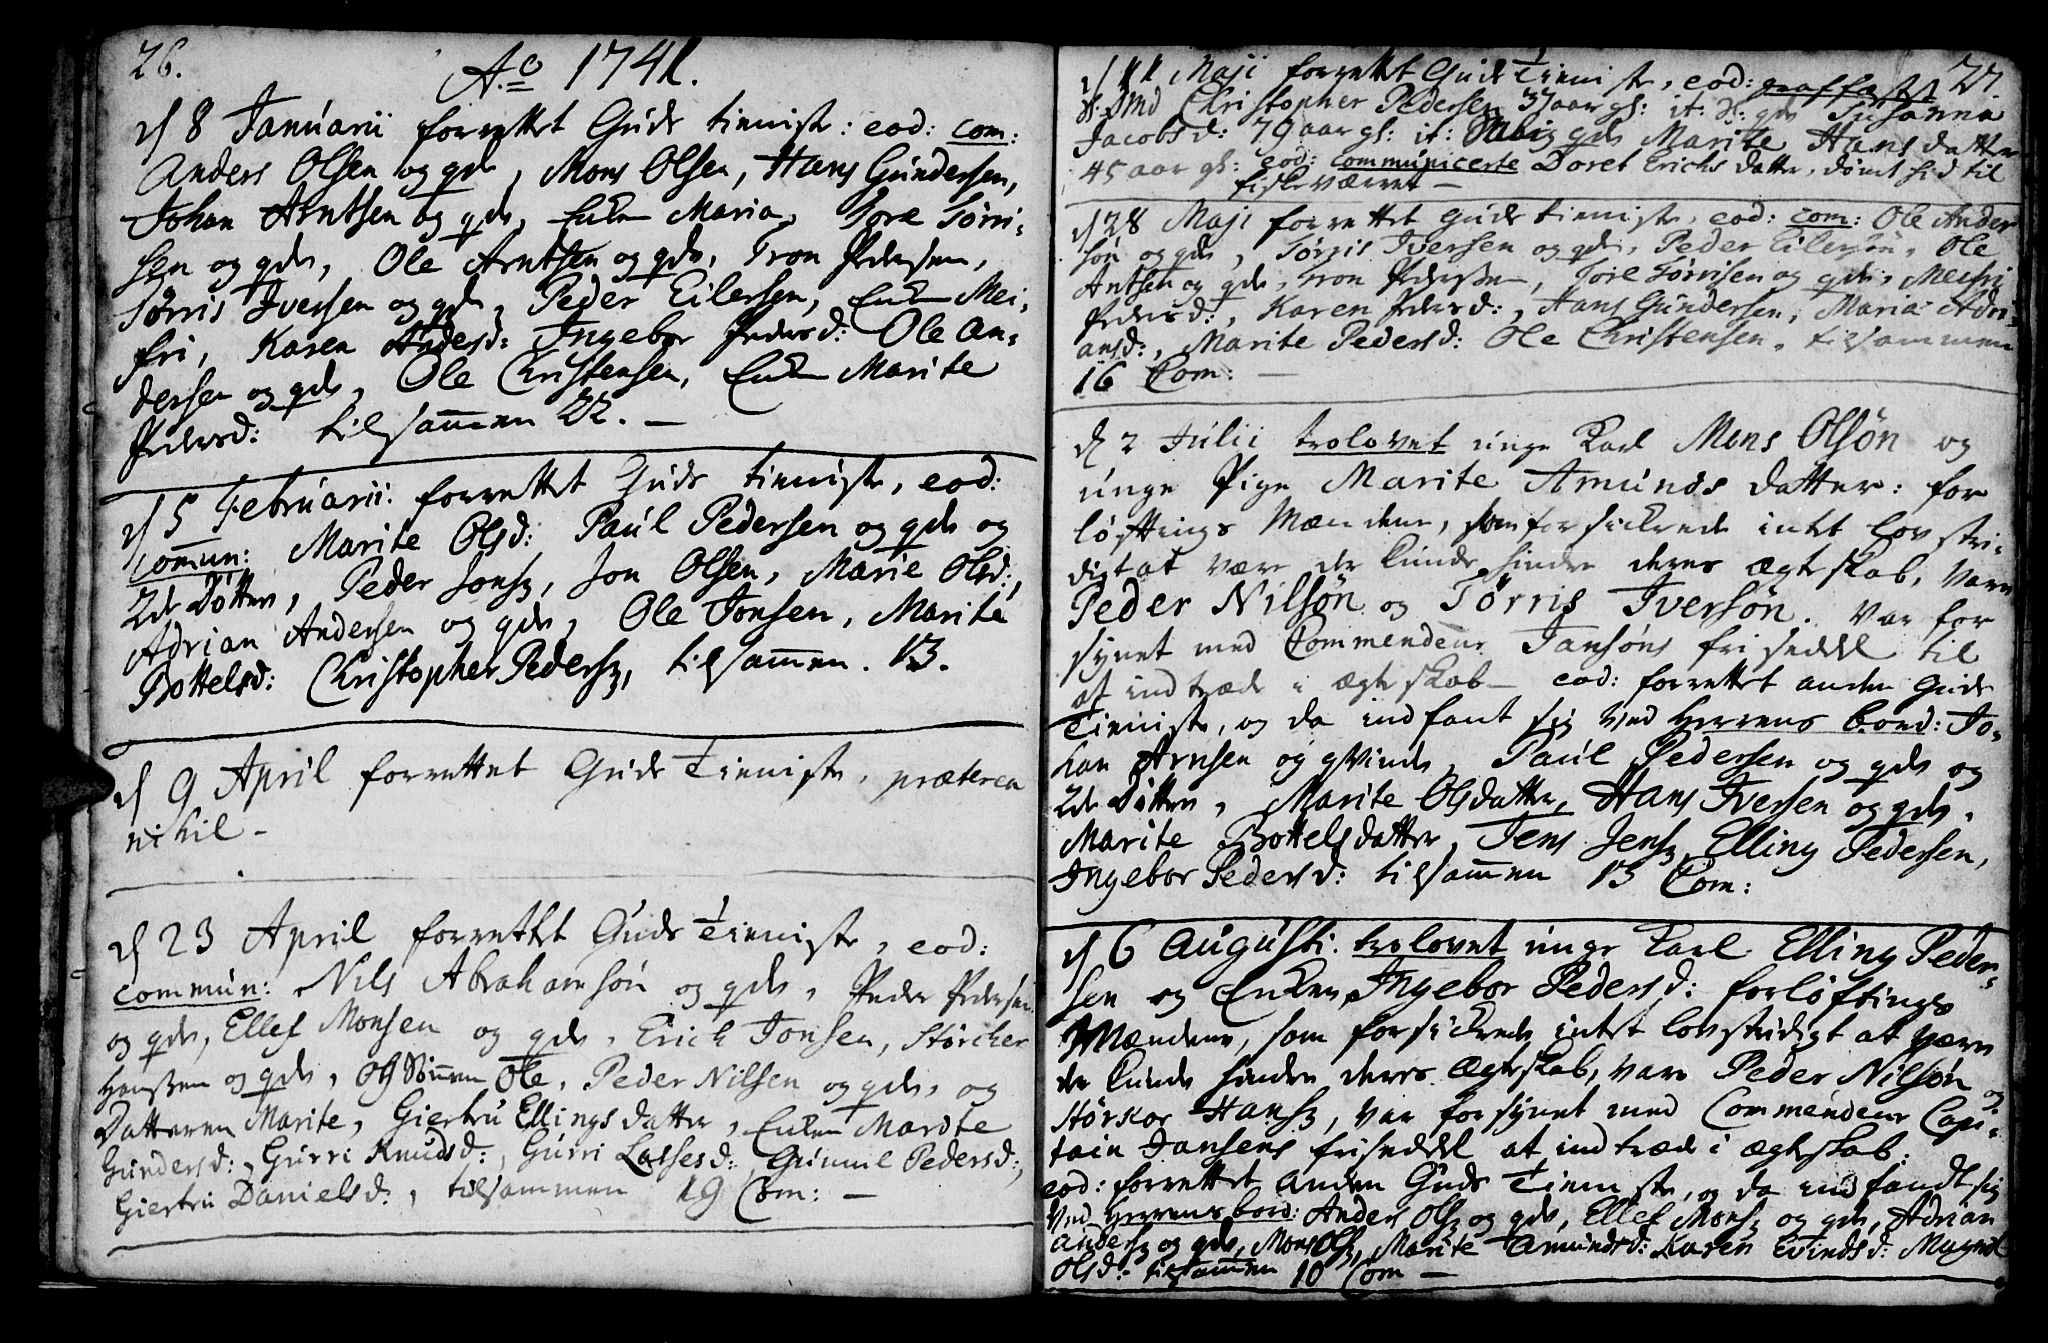 26.
A.o 1741.
d 8 Januarii forrettet Guds tieniste: eod: com:
Anders Olsen og qde, Mons Olsen, Hans Gundersen,
Johan Arntsen og qde, Enken Maria, Tore Törri-
sen og qde, Ole Arntsen og qde, Tron Pedersen,
Törris Iversen og qde, Peder Eilersen, Enken Mei-
fri, Karen Andersd: Ingebor Pedersd: Ole An-
dersen og qde, Ole Christensen, Enken Marite
Pedersd: tilsammen 22. —
d 5 Februarii: forrettet Guds tieniste, eod:
commun: Marite Olsd: Paul Pedersen og qde og
2de Döttre, Peder Jons, Jon Olsen, Marie Olsd:,
Adrian Andersen og qde, Ole Jonsen, Marite
Bottelsd: Christopher Peders, tilsammen. 13.
d 9 April forrettet Guds Tieniste, præterea
nihil —
d 23 April forrettet Guds Tieniste, eod:
commun: Nils Abrahamsön og qde, Peder Pedersen
og qde, Ellef Monsen og qde, Erich Jonsen, Störcher
Hanssen og qde, og Sönnen Ole, Peder Nilsen og qde, og
Datteren Marite, Giertru Ellings datter, Enken Marite
Gundersd:, Gurri Knudsd:, Gurri Lassesd:, Gunnil Pedersd:,
Giertru Danielsd:, tilsammen 19 Com: —
27.
d 11 Maji forrettet Guds Tieniste, eod:
Christopher Pedersen 37 aar gl: it: Susanna
Jacobsd: 79 aar gl: it: Marite Hans datter
45 aar gl: eod: communicerte Doret Erichs datter, dömt hid til
fiskeværret —
d 28 Maji forrettet Guds tieniste, eod: com: Ole Ander
sön og qde, Törris Iversen og qde, Peder Eilersen, Ole
Antsen og qde, Tron Pederssen, Tore Törrisen og qde, Meifri
Pedersd:, Karen Pedersd:, Hans Gundersen, Maria Adri-
ansd:, Marite Pedersd: Ole Christensen, tilsammen
16 Com: —
d 2 Julii trolovet unge Karl Mons Olsön og
unge Pige Marite Amunds datter: for
löftings Mændene, som forsickrede intet lovstri-
digt at være der kunde hindre deres ægteskab, vare
Peder Nilsön og Törris Iversön. Var for
synet med Commendeur Jansöns friseddel til
at indtræde i ægteskab — eod: forrettet anden Guds
Tieniste, og da indfant sig ved Herrens bord: Jo-
han Arnsen og qvinde, Paul Pedersen og qde og
2de Döttre, Marite Olsdatter, Hans Iversen og qde,
Marite Bottelsdatter, Jens Jens, Elling Pedersen,
Ingebor Pedersd: tilsammen 13 Com:
d 6 Augusti. trolovet unge Karl Elling Peder-
sen og Enken Ingebor Pedersd: forlöftings
Mændene, som forsickrede intet lovstridigt at være
der kunde hindre deres Ægteskab, vare Peder Nilsön og
Störkor Hans, var forsynet med Commendeur Capi-
tain Jansens friseddel at indtræde i ægteskab.
eod: forrettet anden Guds Tieniste, og da indfandt sig
ved Herrens bord: Anders Ols og qde, Ellef Mons og qde, Adrian
Anders og qde, Mons Ols, Marite Amundsd: Karen Evindsd:
Olsd: tilsammen 10 Com —